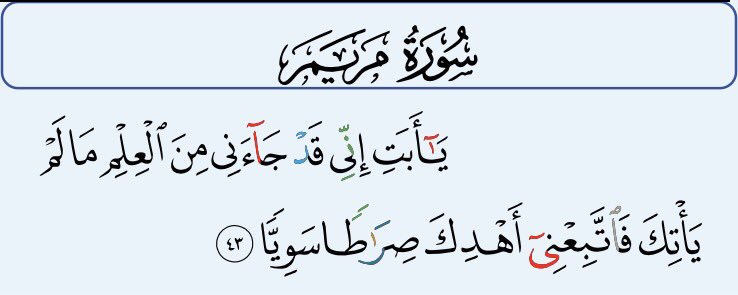 سُورَةُ مَرْيَمَ
يَـٰٓأَبَتِ إِنِّى قَدْ جَآءَنِى مِنَ ٱلْعِلْمِ مَا لَمْ
يَأْتِكَ فَٱتَّبِعْنِىٓ أَهْدِكَ صِرَٰطًا سَوِيًّا ٤٣